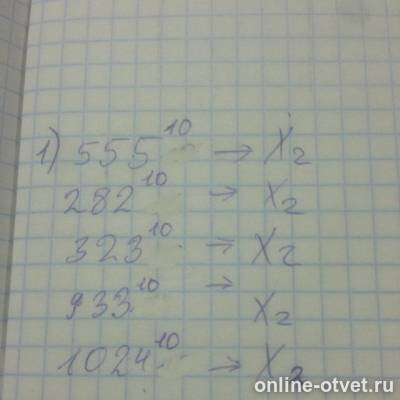 1) 555¹⁰ → X₂
282¹⁰ → X₂
323¹⁰ → X₂
933¹⁰ → X₂
1024¹⁰ → X₂
online-otvet.ru